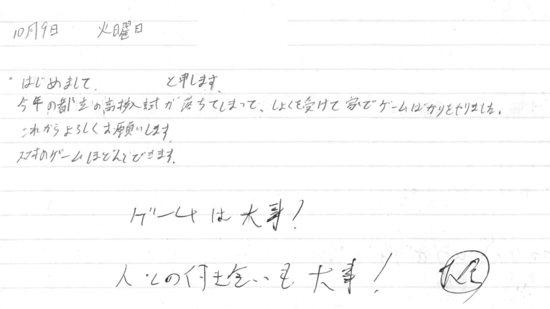 10月9日 火曜日
はじめまして、 と申します。
今年の都立の高校入試が落ちてしまって、しょくを受けて家でゲームばかりをやりました。
これからよろしくお願いします。
スマホのゲームほとんどできます。
ゲームは大事!
人との付き合いも大事!